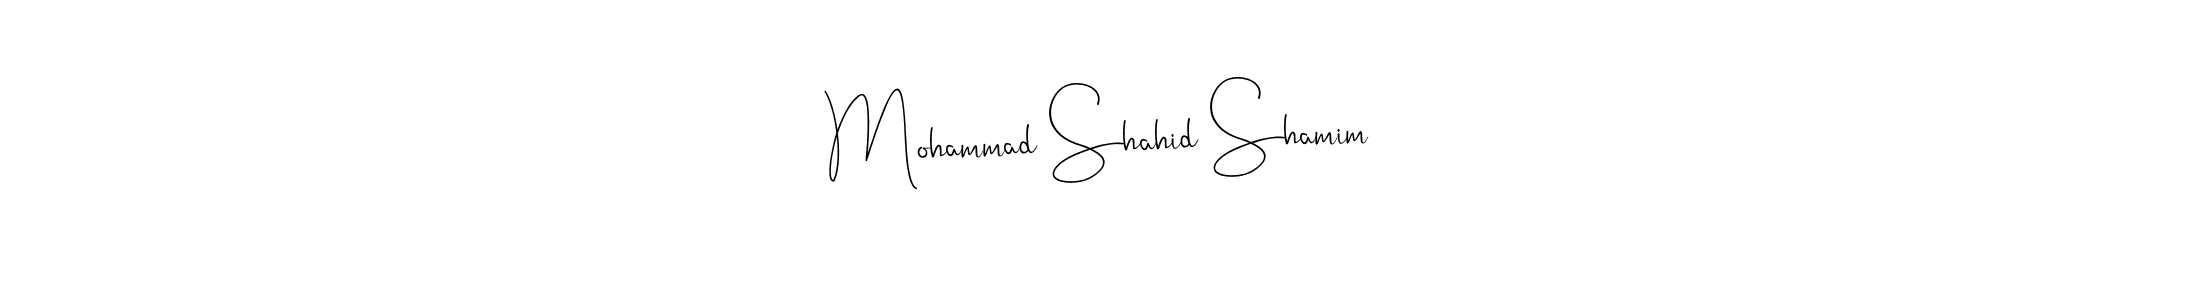 Mohammad Shahid Shamim